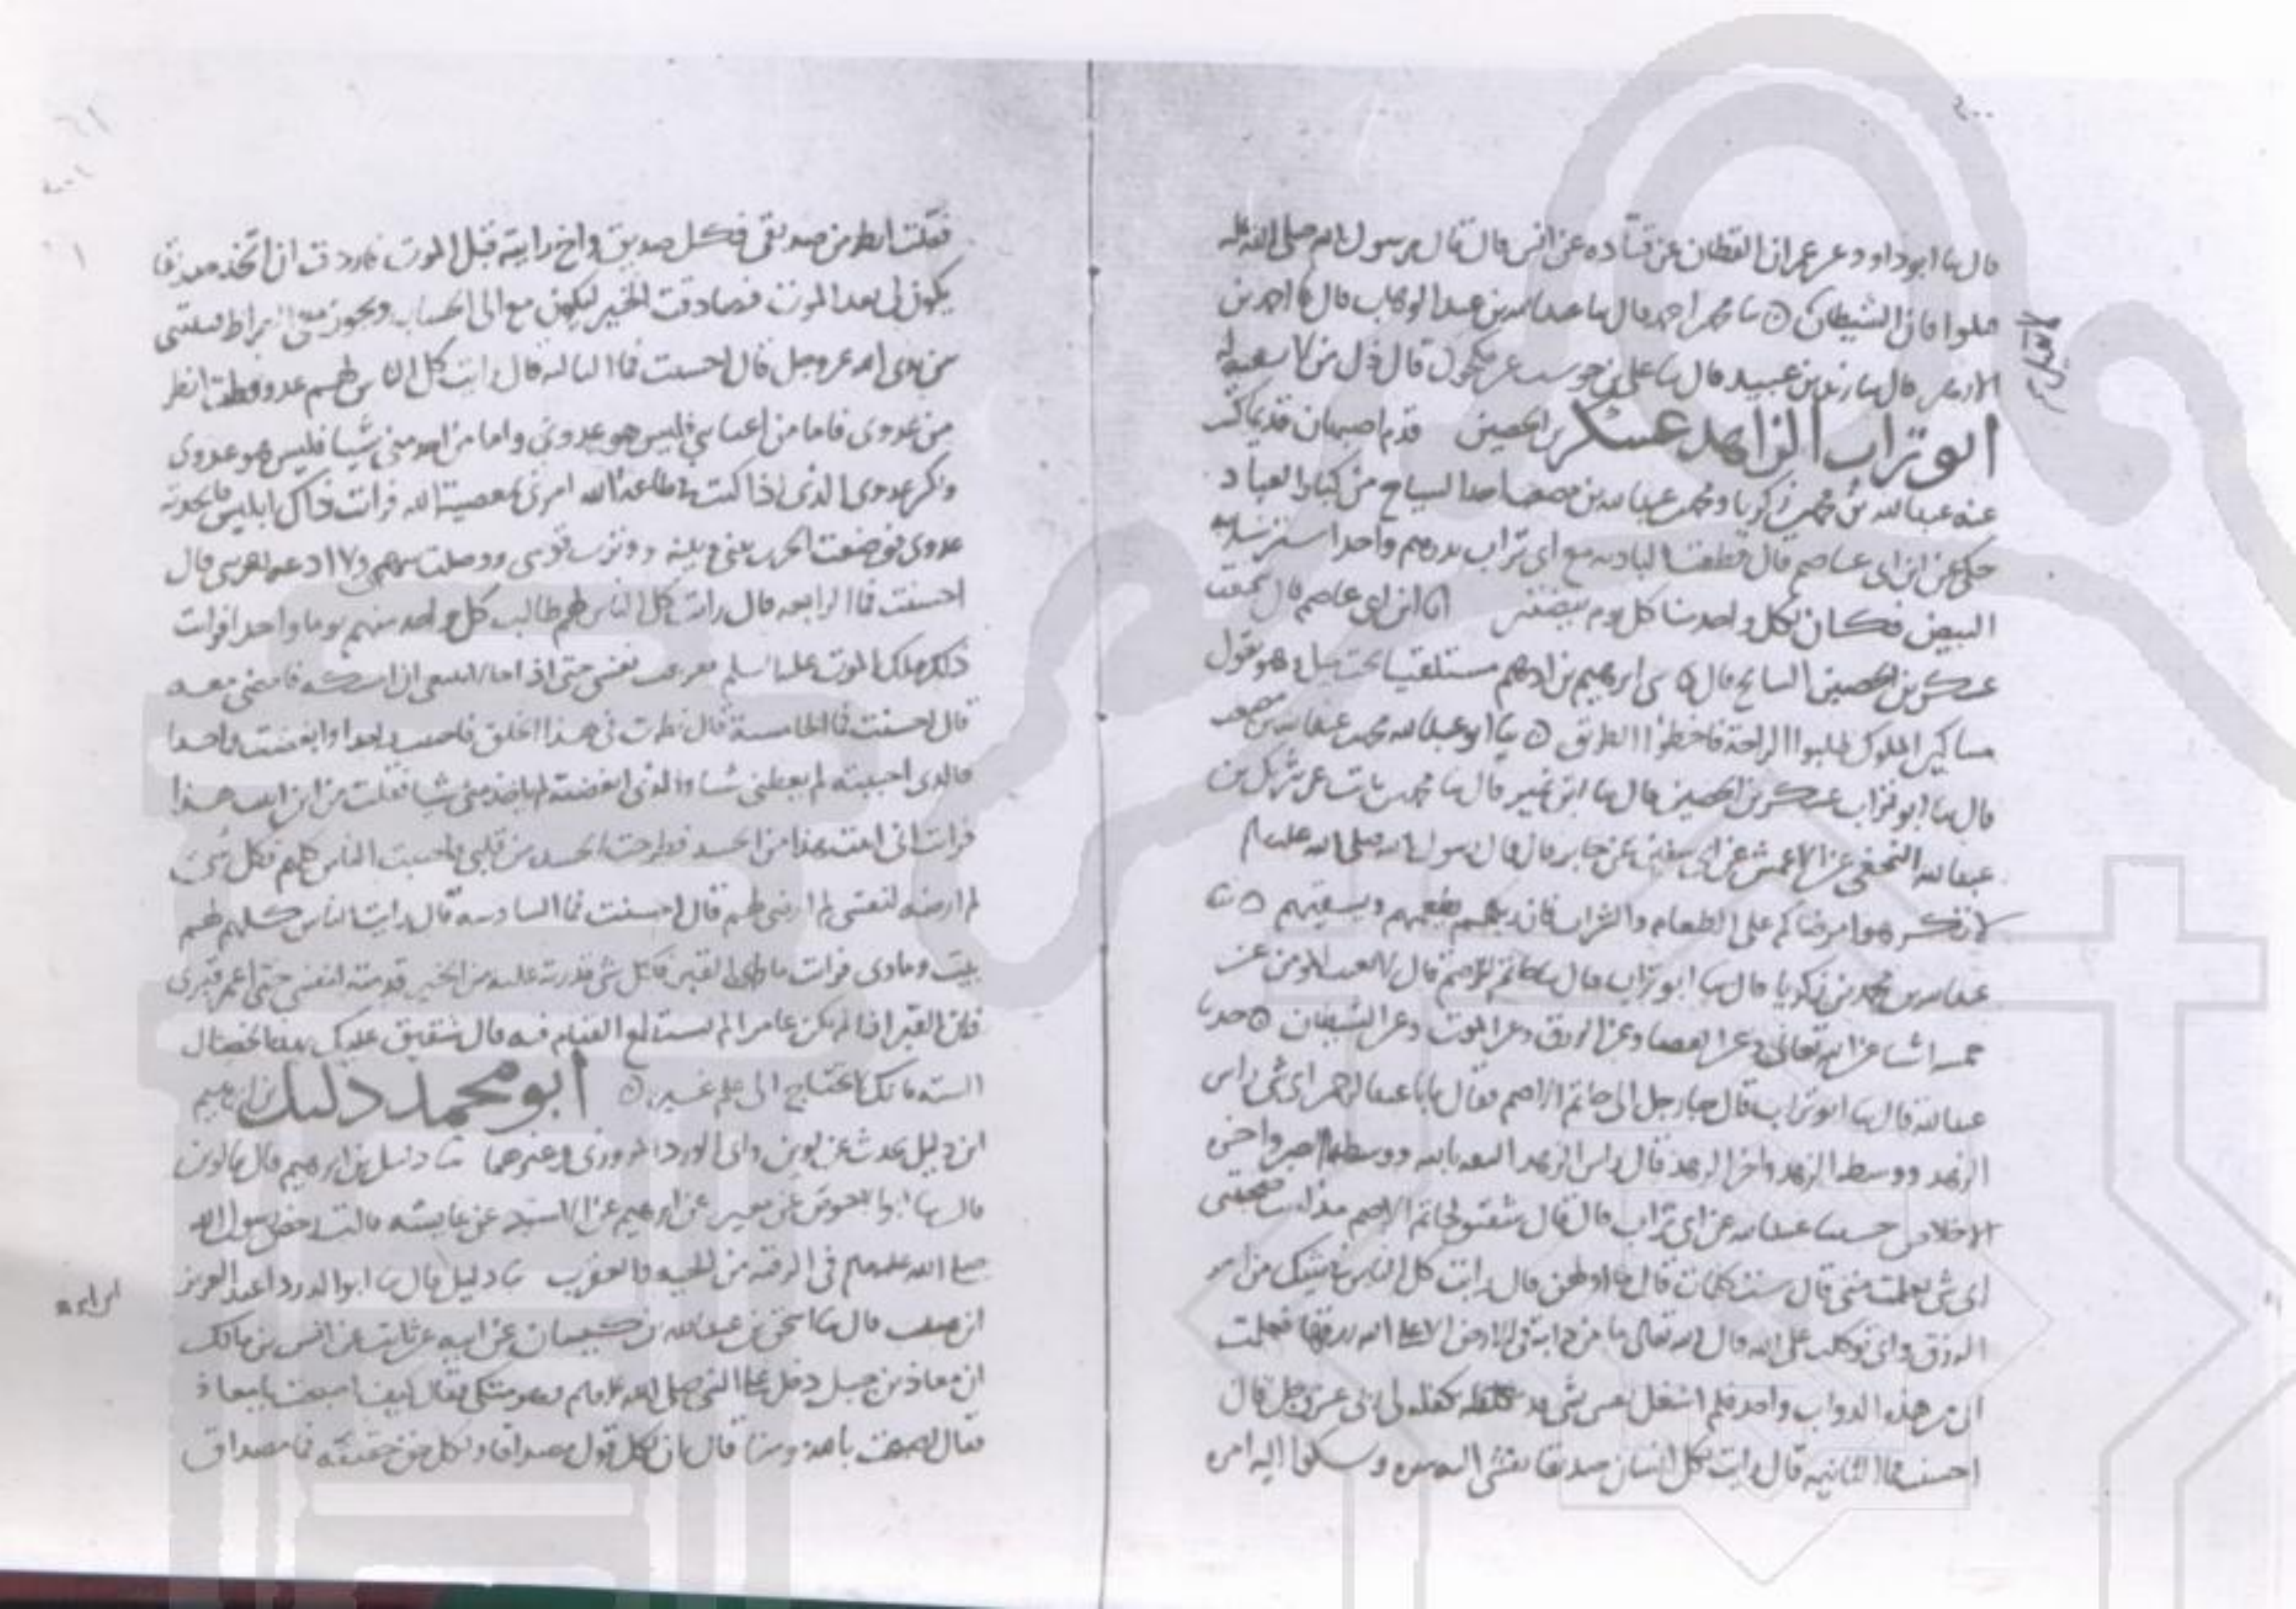 قال نا ابو داود عن عمران القطان عن قتاده عن انس قال قال رسول الله صلى الله عليه
قيلوا فان الشيطان نا محمد بن احمد قال نا عبدالله بن عبدالوهاب قال نا احمد بن
قال نا يزيد بن عبيد قال نا على بن عن مكحول قال ذل من لا سفيه له
ابو تراب الزاهد عسكر بن الحصين قدم اصبهان قديما كتب
عنه عبدالله بن محمد بن زكريا ومحمد بن عبدالله بن مصعب احد السياح من كبار العباد
حكى عن ابن ابى عاصم قال قطعت الباديه مع ابى تراب بدرهم واحد
البيض فكان لكل واحد منا كل يوم بيضتين نا ابن ابى عاصم قال سمعت
عسكر بن الحصين السايح قال ابرهيم بن ادهم مستلقيا تحت وهو يقول
مساكين الملوك طلبوا الراحة فاخطوا الطريق نا ابو عبدالله محمد بن عبدالله بن مصعب
قال نا ابو تراب عسكر بن الحصين قال نا ابن نمير قال نا محمد بن ثابت عن شريك بن
عبدالله النخعى عن الاعمش عن ابى سفين عن جابر قال قال رسول الله صلى الله عليه
لا تكرهوا مرضاكم على الطعام والشراب فان ربهم يطعمهم ويسقيهم نا
عبدالله بن محمد بن زكريا قال نا ابو تراب قال نا حاتم الاصم قال العبد المومن عن
خمسه اشيا عن الله تعالى وعن القضا وعن الرزق وعن الموت وعن الشيطان حدثنا
عبدالله قال نا ابو تراب قال جا رجل الى حاتم الاصم فقال يابا عبدالرحمن اى شى راس
الزهد ووسط الزهد واخر الزهد فقال راس الزهد الثقه بالله ووسطه الصبر واخره
الاخلاص حدثنا عبدالله عن ابى تراب قال قال شقيق لحاتم الاصم مذ انت صحبتنى
اى شى تعلمت منى قال ست كلمات قال ما اولهن قال رايت كل الناس فى شك من امر
الرزق وانى توكلت على الله قال الله تعالى ما من دابة فى الارض الا على الله رزقها فعلمت
انى من هذه الدواب واحد فلم اشغل نفسى بشى قد تكفله لى ربى عز وجل قال
احسنت فما الثانيه قال رايت لكل انسان صديقا يفشى اليه سره وسكوا اليه امره
فقلت انظر من صديقى فكل صديق واخ رايته قبل الموت فاردت ان اتخذ صديقا
يكون لى بعد الموت فصادقت الخير ليكون معى الى الحساب ويجوز معى الصراط ويثبتنى
بين يدى الله عز وجل قال احسنت فما الثالثه قال رايت كل الناس لهم عدو فقلت انظر
من عدوى فاما من اغتابنى فليس هو عدوى واما من اخذ منى شيا فليس هو عدوى
ولكن عدوى الذى اذا كنت فى طاعة الله امرنى بمعصية الله فرايت ذاك ابليس فاتخذته
عدوى فوضعت الحرب بينى وبينه ووترت قوسى ووصلت سهمى ولا ادعه يقربنى قال
احسنت فما الرابعه قال رايت كل الناس لهم طالب كل واحد منهم يوما واحدا فرايت
ذلك ملك الموت عليه السلم نفسى حتى اذا جا لا ينبغى ان امسكه فامضى معه
قال احسنت فما الخامسة قال نظرت فى هذا الخلق فاحببت واحدا وابغضت واحدا
فالذى احببته لم يعطنى شيا والذى ابغضته لم ياخذ منى شيا فقلت من اين اتيت هذا
فرايت انى اتيت هذا من الحسد فطرحت الحسد من قلبى فاحببت الناس كلهم فكل شى
لم ارضه لنفسى لم ارضه لهم قال احسنت فما السادسه قال رايت الناس كلهم لهم
بيت وماوى فرايت ماواى القبر فكل شى قدرت عليه من الخير قدمته لنفسى حتى اعمر قبرى
فان القبر اذا لم يكن عامرا لم يستطع القيام فيه قال شقيق عليك بهذه الخصال
السته فانك لا تحتاج الى علم غيره ابو محمد دليل بن ابرهيم
ابن دليل يحدث عن لوين وابى الورد المروزى وغيرهما نا دليل بن ابرهيم قال نا لوين
قال نا ابو الاحوص عن مغيره عن ابرهيم عن الاسود عن عايشه قالت رخص رسول الله
صلى الله عليه وسلم فى الرقيه من الحيه والعقرب نا دليل قال نا ابو الورد عبدالعزيز
قال نا اسحق بن عبدالله بن كيسان عن ابيه عن ثابت عن انس بن مالك
ان معاذ بن جبل دخل على النبى صلى الله عليه وسلم وهو متكى فقال كيف اصبحت يا معاذ
فقال اصبحت بالله مومنا قال ان لكل قول مصداقا ولكل حق حقيقه فما مصداق